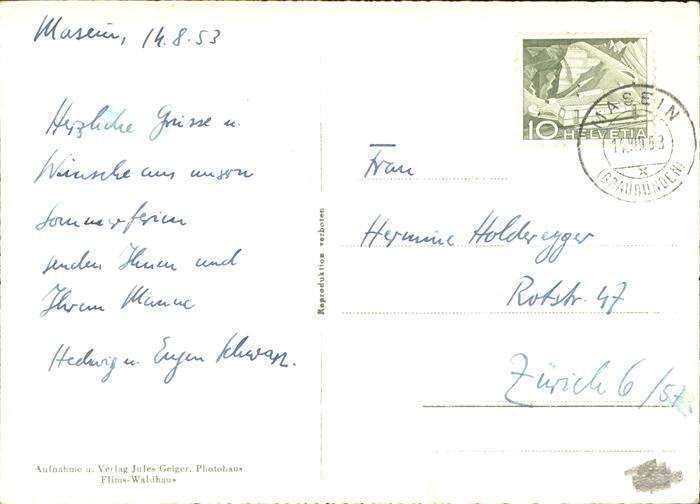 Masein, 14.8.53
Herzliche Grüsse u.
Wünsche aus unsern
Sommerferien
senden Ihnen und
Ihrem Manne
Hedwig u. Eugen Schwarz.
Aufnahme u. Verlag Jules Geiger, Photohaus
Flims-Waldhaus
Reproduktion verboten
10 HELVETIA
MASEIN
(GRAUBÜNDEN)
Frau
Hermine Holderegger
Rotstr. 47
Zürich 6/57.